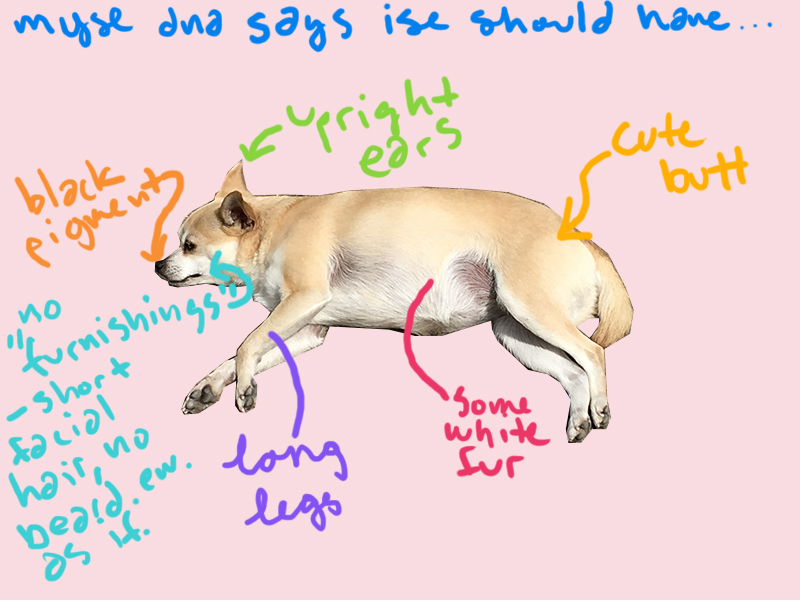 myse dna says ise should have...
upright
ears
cute
butt
black
pigment
no
"furnishings"
- short
facial
hair, no
beard. ew.
as if.
long
legs
some
white
fur